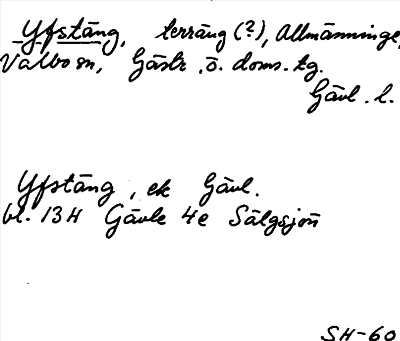 Yfstäng, terräng (?), Allmänninge,
Valbo sn, Gästr. ö. doms. tg.
Gävl. l.
Yfstäng, ek Gävl.
bl. 13H Gävle 4e Sälgsjön
SH-60